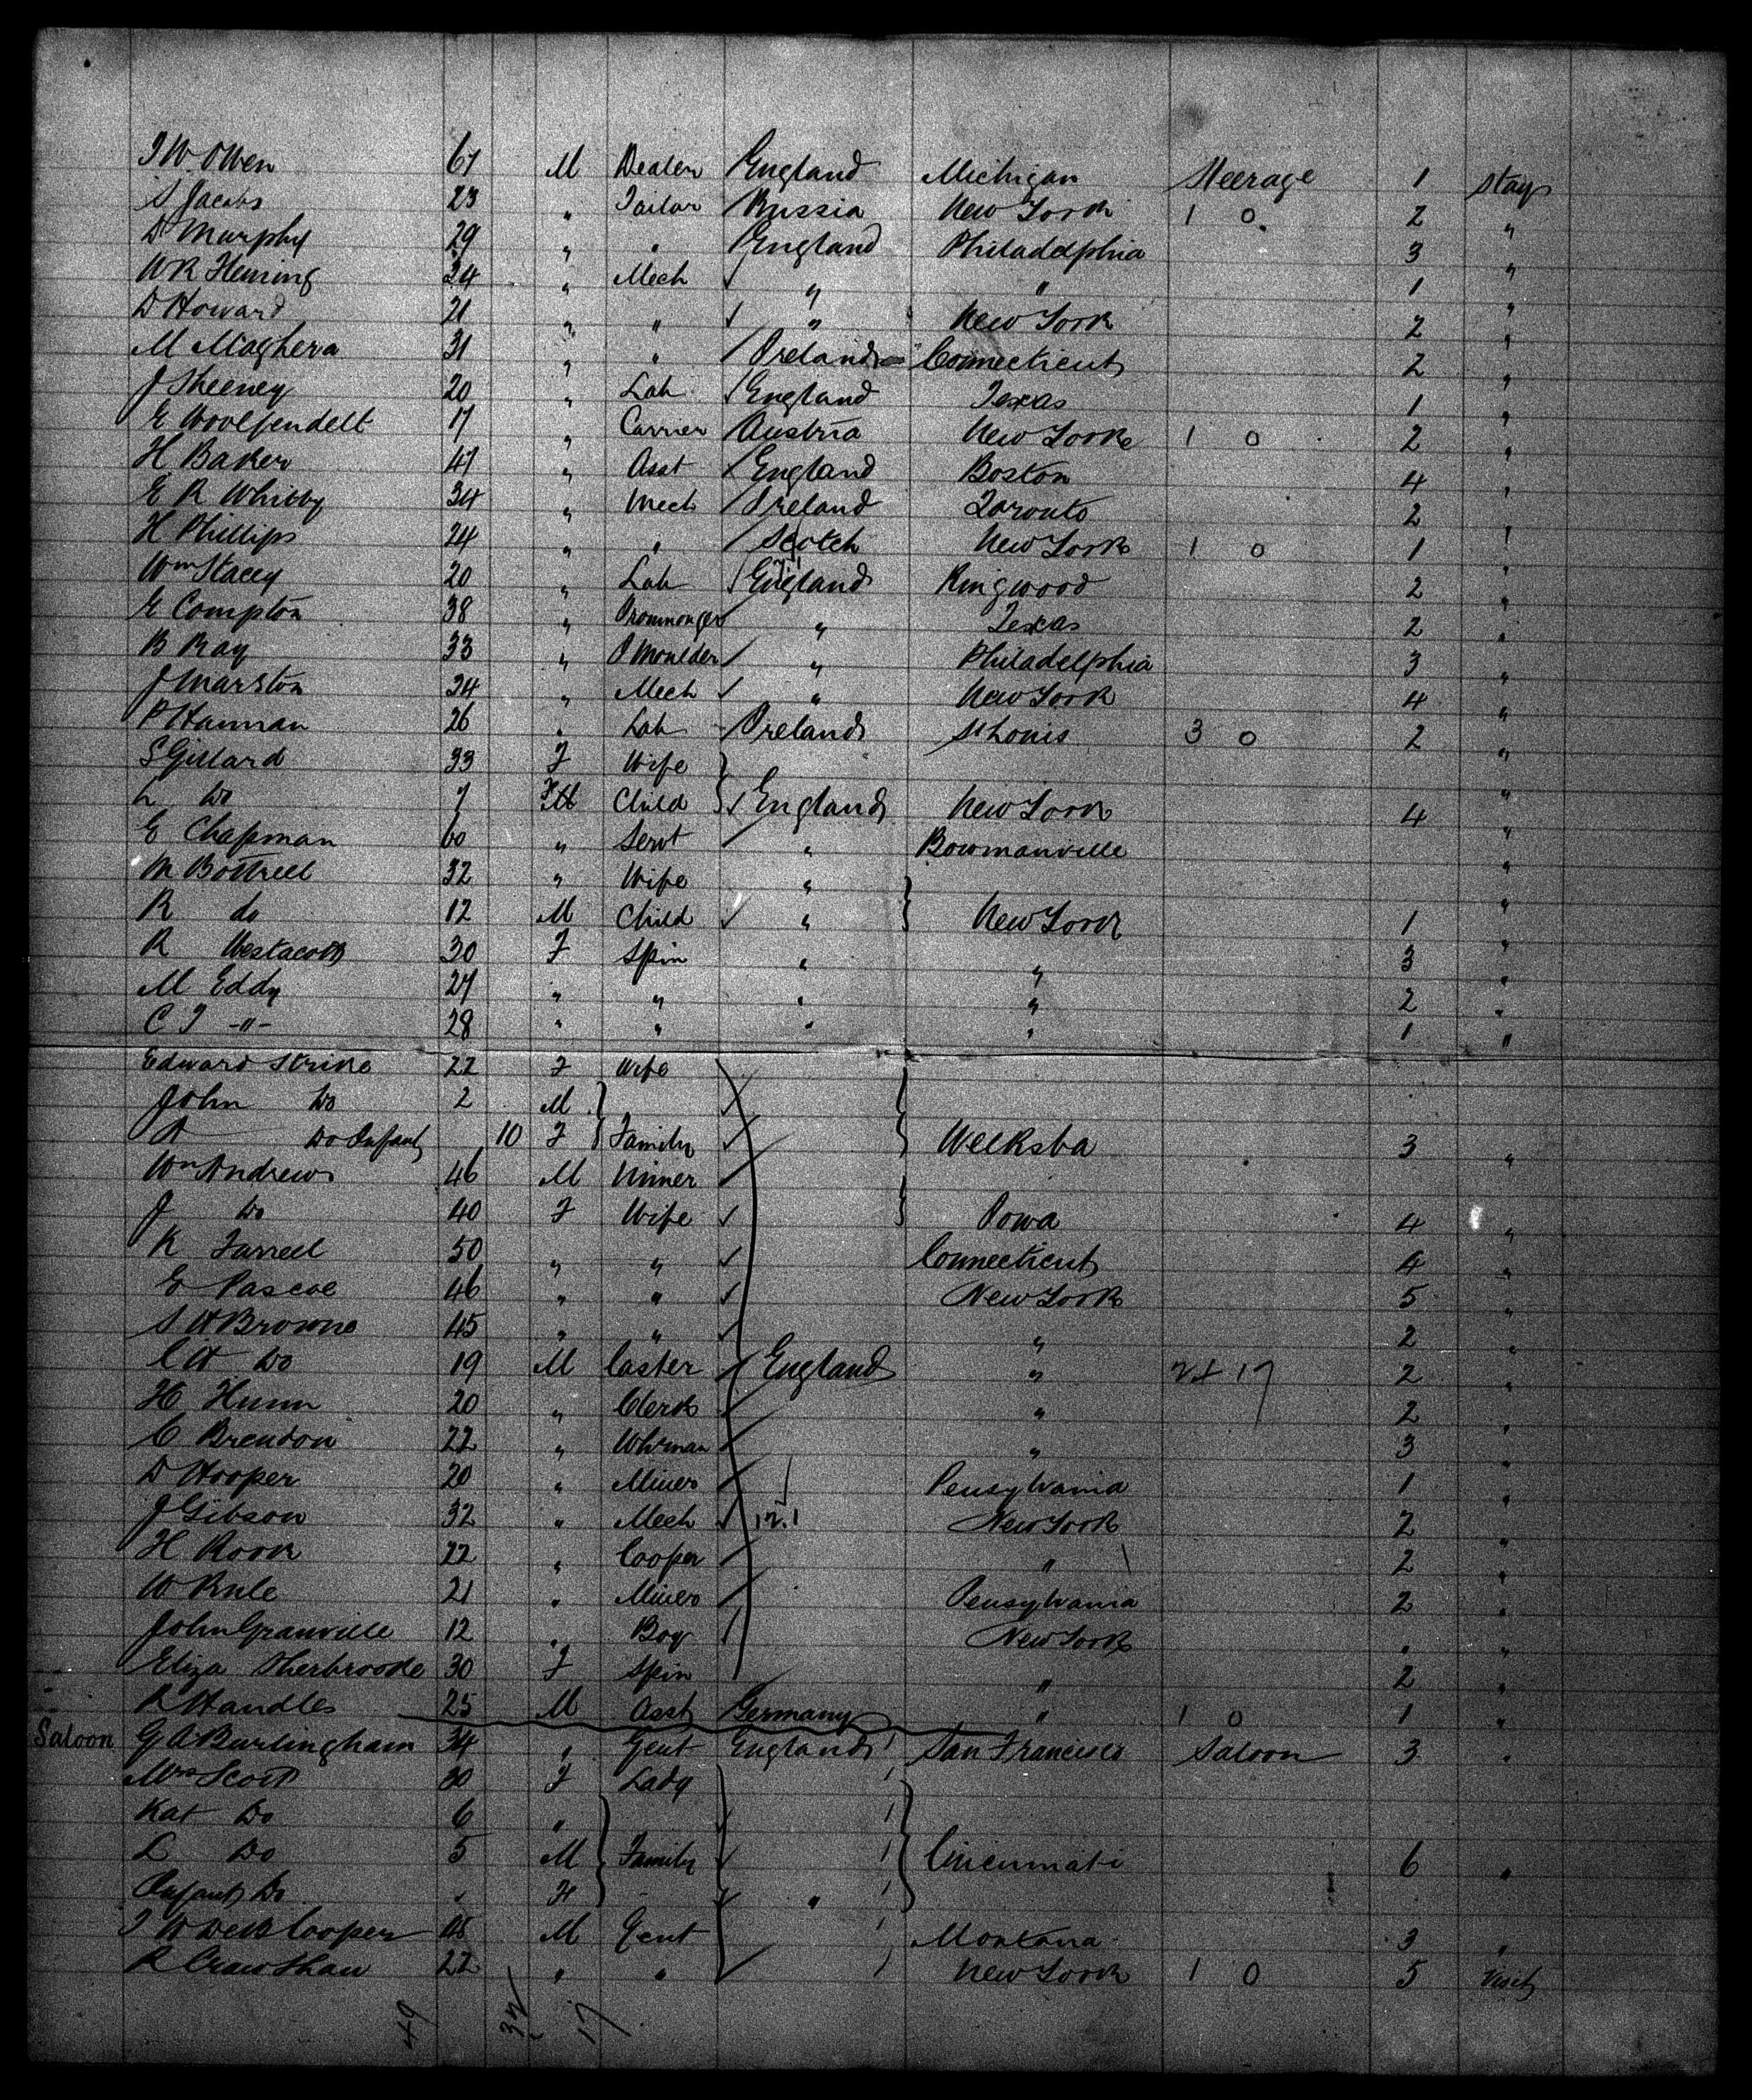 J W Owen 67 M Dealer England Michigan Steerage 1 Stay
S Jacobs 23 " Tailor Russia New York 1 0 2 "
D Murphy 29 " " England Philadelphia 3 "
W R Fleming 24 " Mech " " 1 "
D Howard 21 " " " New York 2 "
M Maghera 31 " " Ireland Connecticut 2 "
J Sheeney 20 " Lab England Texas 1 "
E Woolfendelt 17 " Carrier Austria New York 1 0 2 "
H Baker 47 " Asst England Boston 4 "
E R Whitby 34 " Mech Ireland Toronto 2 "
H Phillips 24 " " Scotch New York 1 0 1 "
Wm Stacey 20 " Lab England Ringwood 2 "
E Compton 38 " Ironmonger " Texas 2 "
B Ray 33 " I Moulder " Philadelphia 3 "
J Marston 24 " Mech " New York 4 "
P Hannan 26 " Lab Ireland St Louis 3 0 2 "
S Gillard 33 F Wife "
L Do 7 Child England New York 4 "
E Chapman 60 " Servt " Bowmanville "
M Bottrell 32 " Wife " "
R do 12 M Child " New York 1 "
R Westacott 30 F Spin " " 3 "
M Eddy 27 " " " " 2 "
C J -"- 28 " " " " 1 "
Edward Strike 22 F Wife
John Do 2 M
A Do Infant 10 F Family 3 "
Wm Andrews 46 M Miner
J Do 40 F Wife Iowa 4 "
K Farrell 50 " " Connecticut 4 "
E Pascoe 46 " " New York 5 "
S A Browne 45 " " " 2 "
C A Do 19 M Caster England " 2 "
H Hunn 20 " Clerk " 2 "
C Brendon 22 " Whman " 3 "
D Hooper 20 " Miner Pensylvania 1 "
J Gibson 32 " Mech 12.1 New York 2 "
H Rook 22 " Cooper " 2 "
W Rule 21 " Miner Pensylvania 2 "
John Granville 12 " Boy New York " "
Eliza Sherbroode 30 F Spin " 2 "
R Handles 25 M Asst Germany " 1 0 1 "
Saloon G A Burlingham 34 " Gent England San Francisco Saloon 3 "
Mrs Scott 30 F Lady
Kat Do 6 "
L Do 5 M Family Cincinnati 6 "
Infant Do " "
Cooper 48 M Gent Montana 3 "
R Crawshaw 22 " " New York 1 0 5 Visit
49 32 17